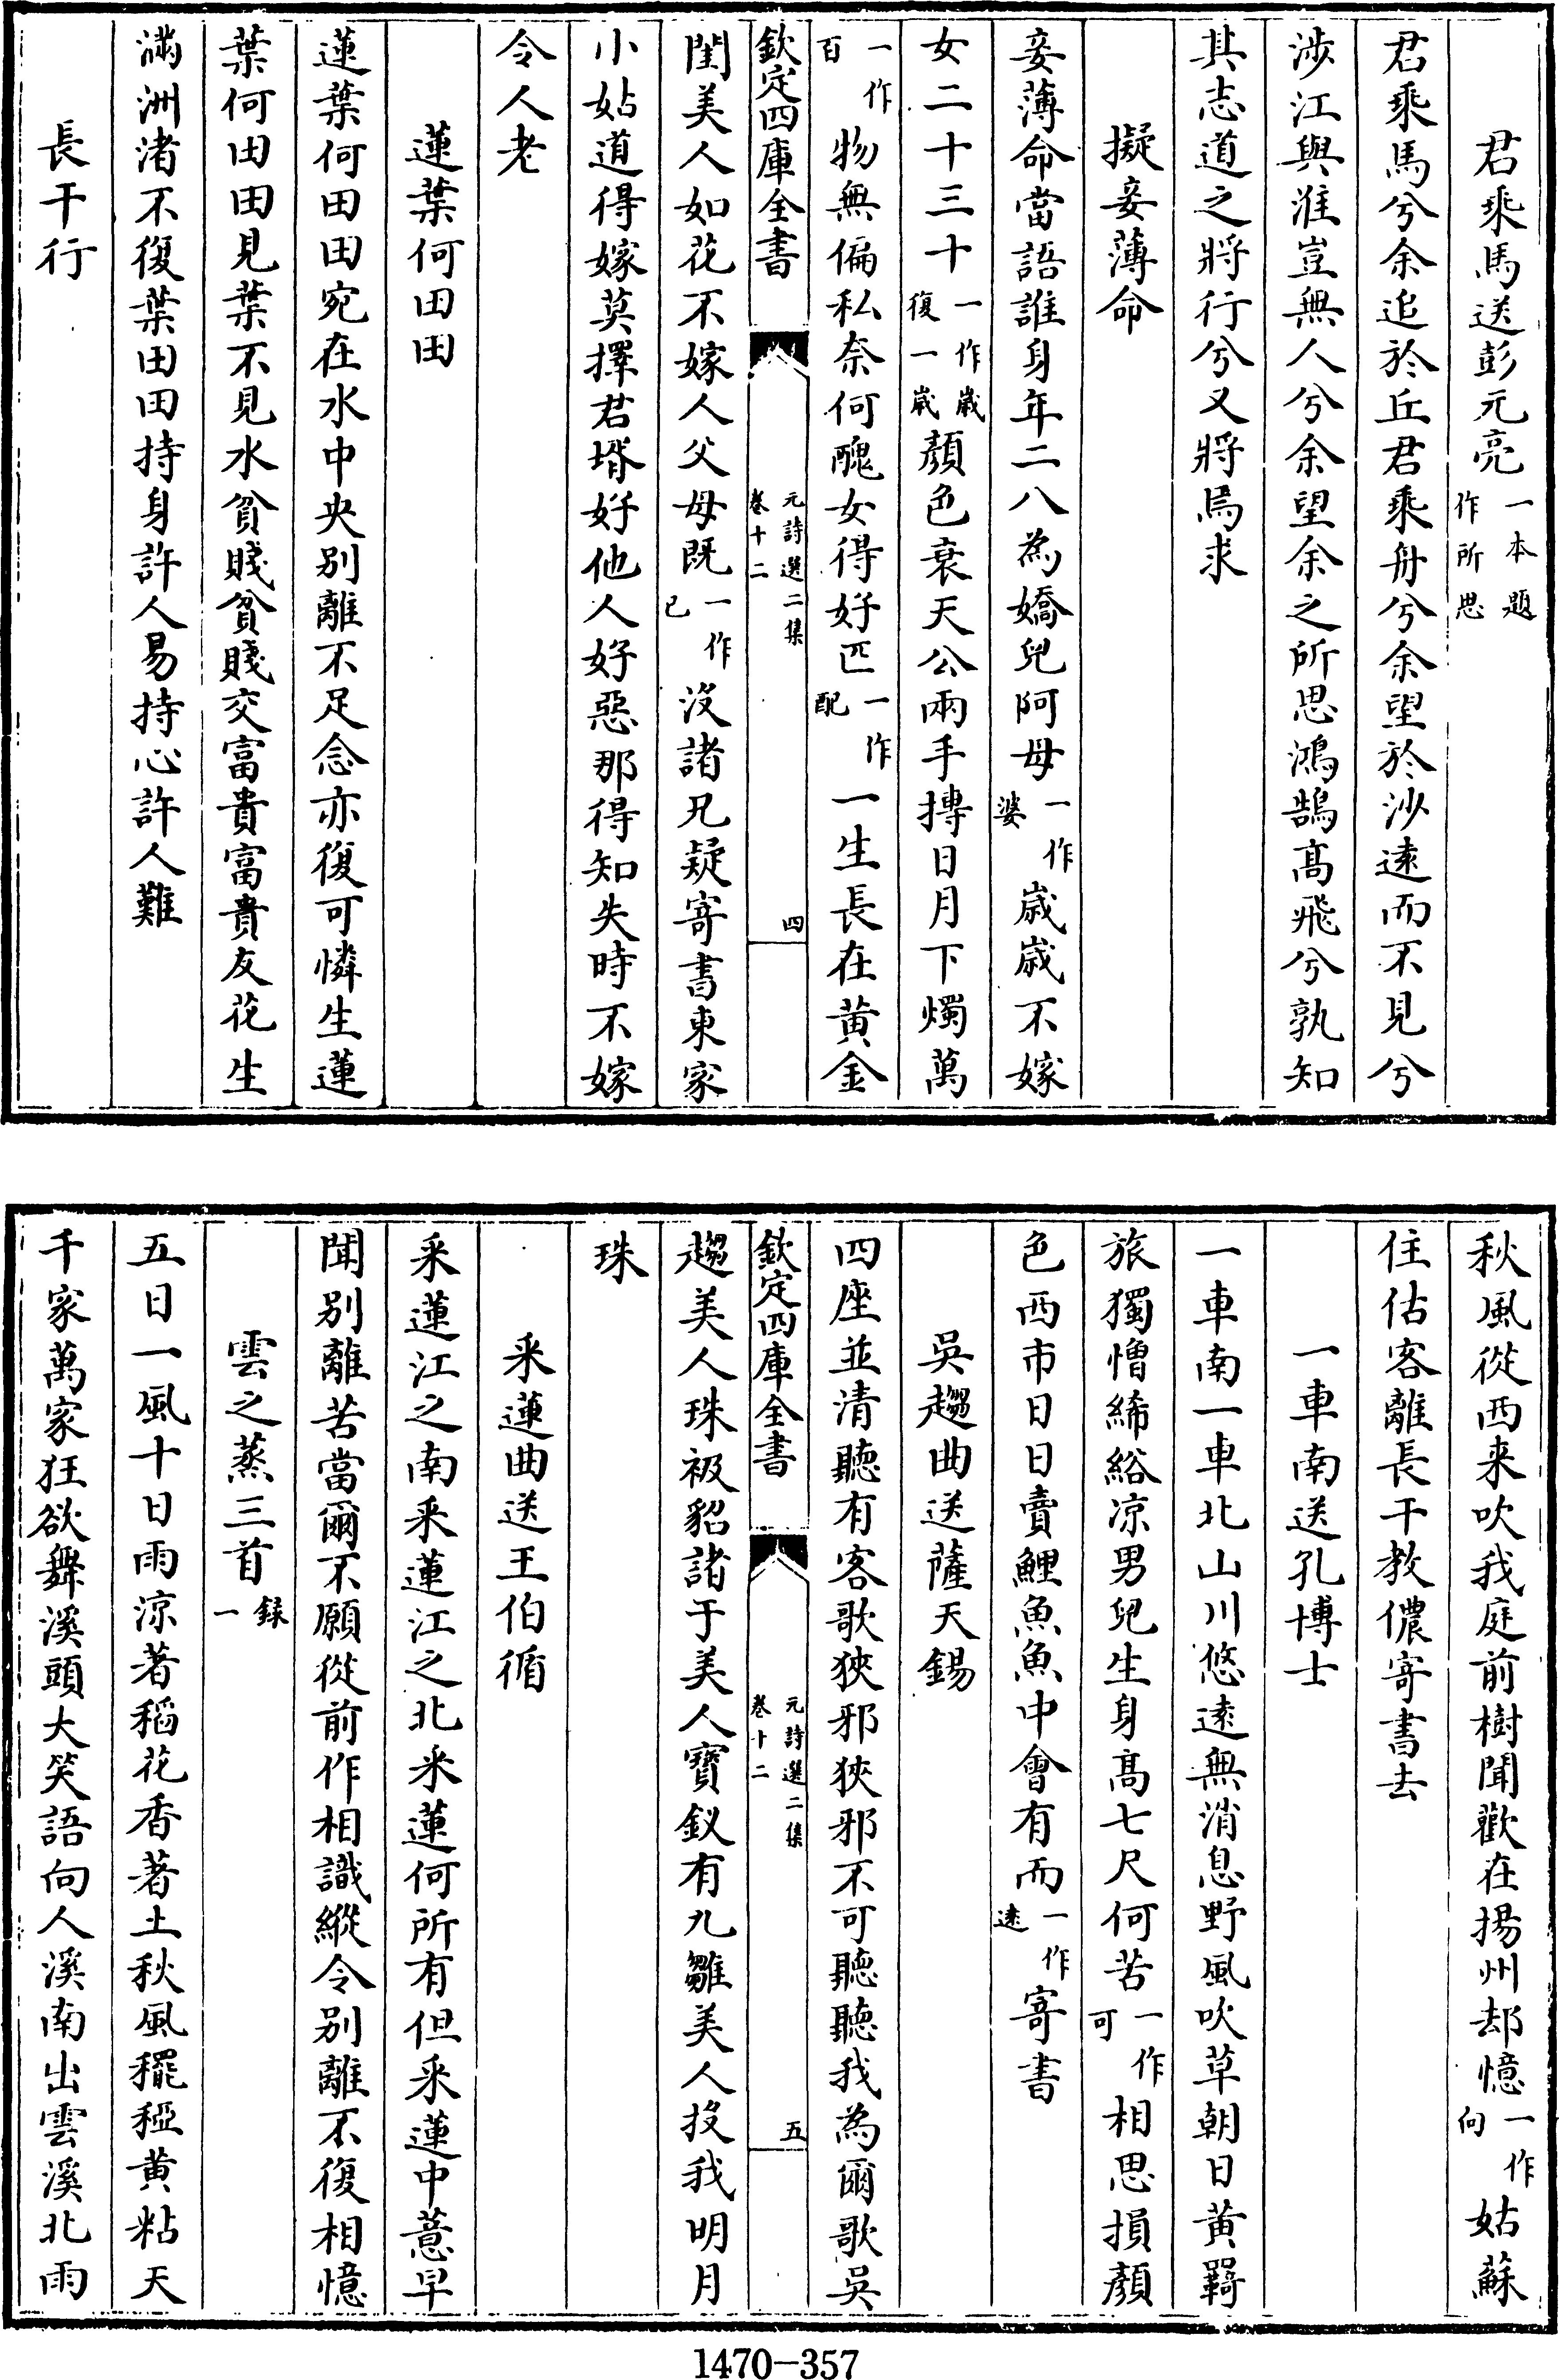 君乘馬送彭元亮一本題作所思
君乘馬兮余追於丘君乘舟兮余望於沙逺而不見兮
涉江與淮豈無人兮余望余之所思鴻鵠髙飛兮孰知
其志道之將行兮又將焉求
擬妾薄命
妾薄命當語誰身年二八為嬌兒阿母一作婆歳歳不嫁
女二十三十一作歳復一歳顔色衰天公兩手摶日月下燭萬
一作百物無偏私奈何醜女得好匹一作配一生長在黄金
欽定四庫全書
元詩選二集
卷十二
四
閨美人如花不嫁人父母既一作已沒諸兄疑寄書東家
小姑道得嫁莫擇君壻好他人好惡那得知失時不嫁
令人老
蓮葉何田田
蓮葉何田田宛在水中央别離不足念亦復可憐生蓮
葉何田田見葉不見水貧賤貧賤交富貴富貴友花生
滿洲渚不復葉田田持身許人易持心許人難
長干行
秋風從西来吹我庭前樹聞歡在揚州却憶一作向姑蘇
住估客離長干教儂寄書去
一車南送孔博士
一車南一車北山川悠逺無消息野風吹草朝日黄羇
旅獨憎絺綌凉男兒生身髙七尺何苦一作可相思損顔
色西市日日賣鯉魚魚中會有而一作逺寄書
吳趨曲送薩天錫
四座並清聽有客歌狹邪狹邪不可聽聽我為爾歌吳
欽定四庫全書
元詩選二集
卷十二
五
趨美人珠衱貂諸于美人寶釵有九雛美人投我明月
珠
采蓮曲送王伯循
采蓮江之南采蓮江之北采蓮何所有但采蓮中薏早
聞别離苦當爾不願從前作相識縱令别離不復相憶
雲之蒸三首録一
五日一風十日雨凉著稻花香著土秋風䆉稏黄粘天
千家萬家狂欲舞溪頭大笑語向人溪南出雲溪北雨
1470-357